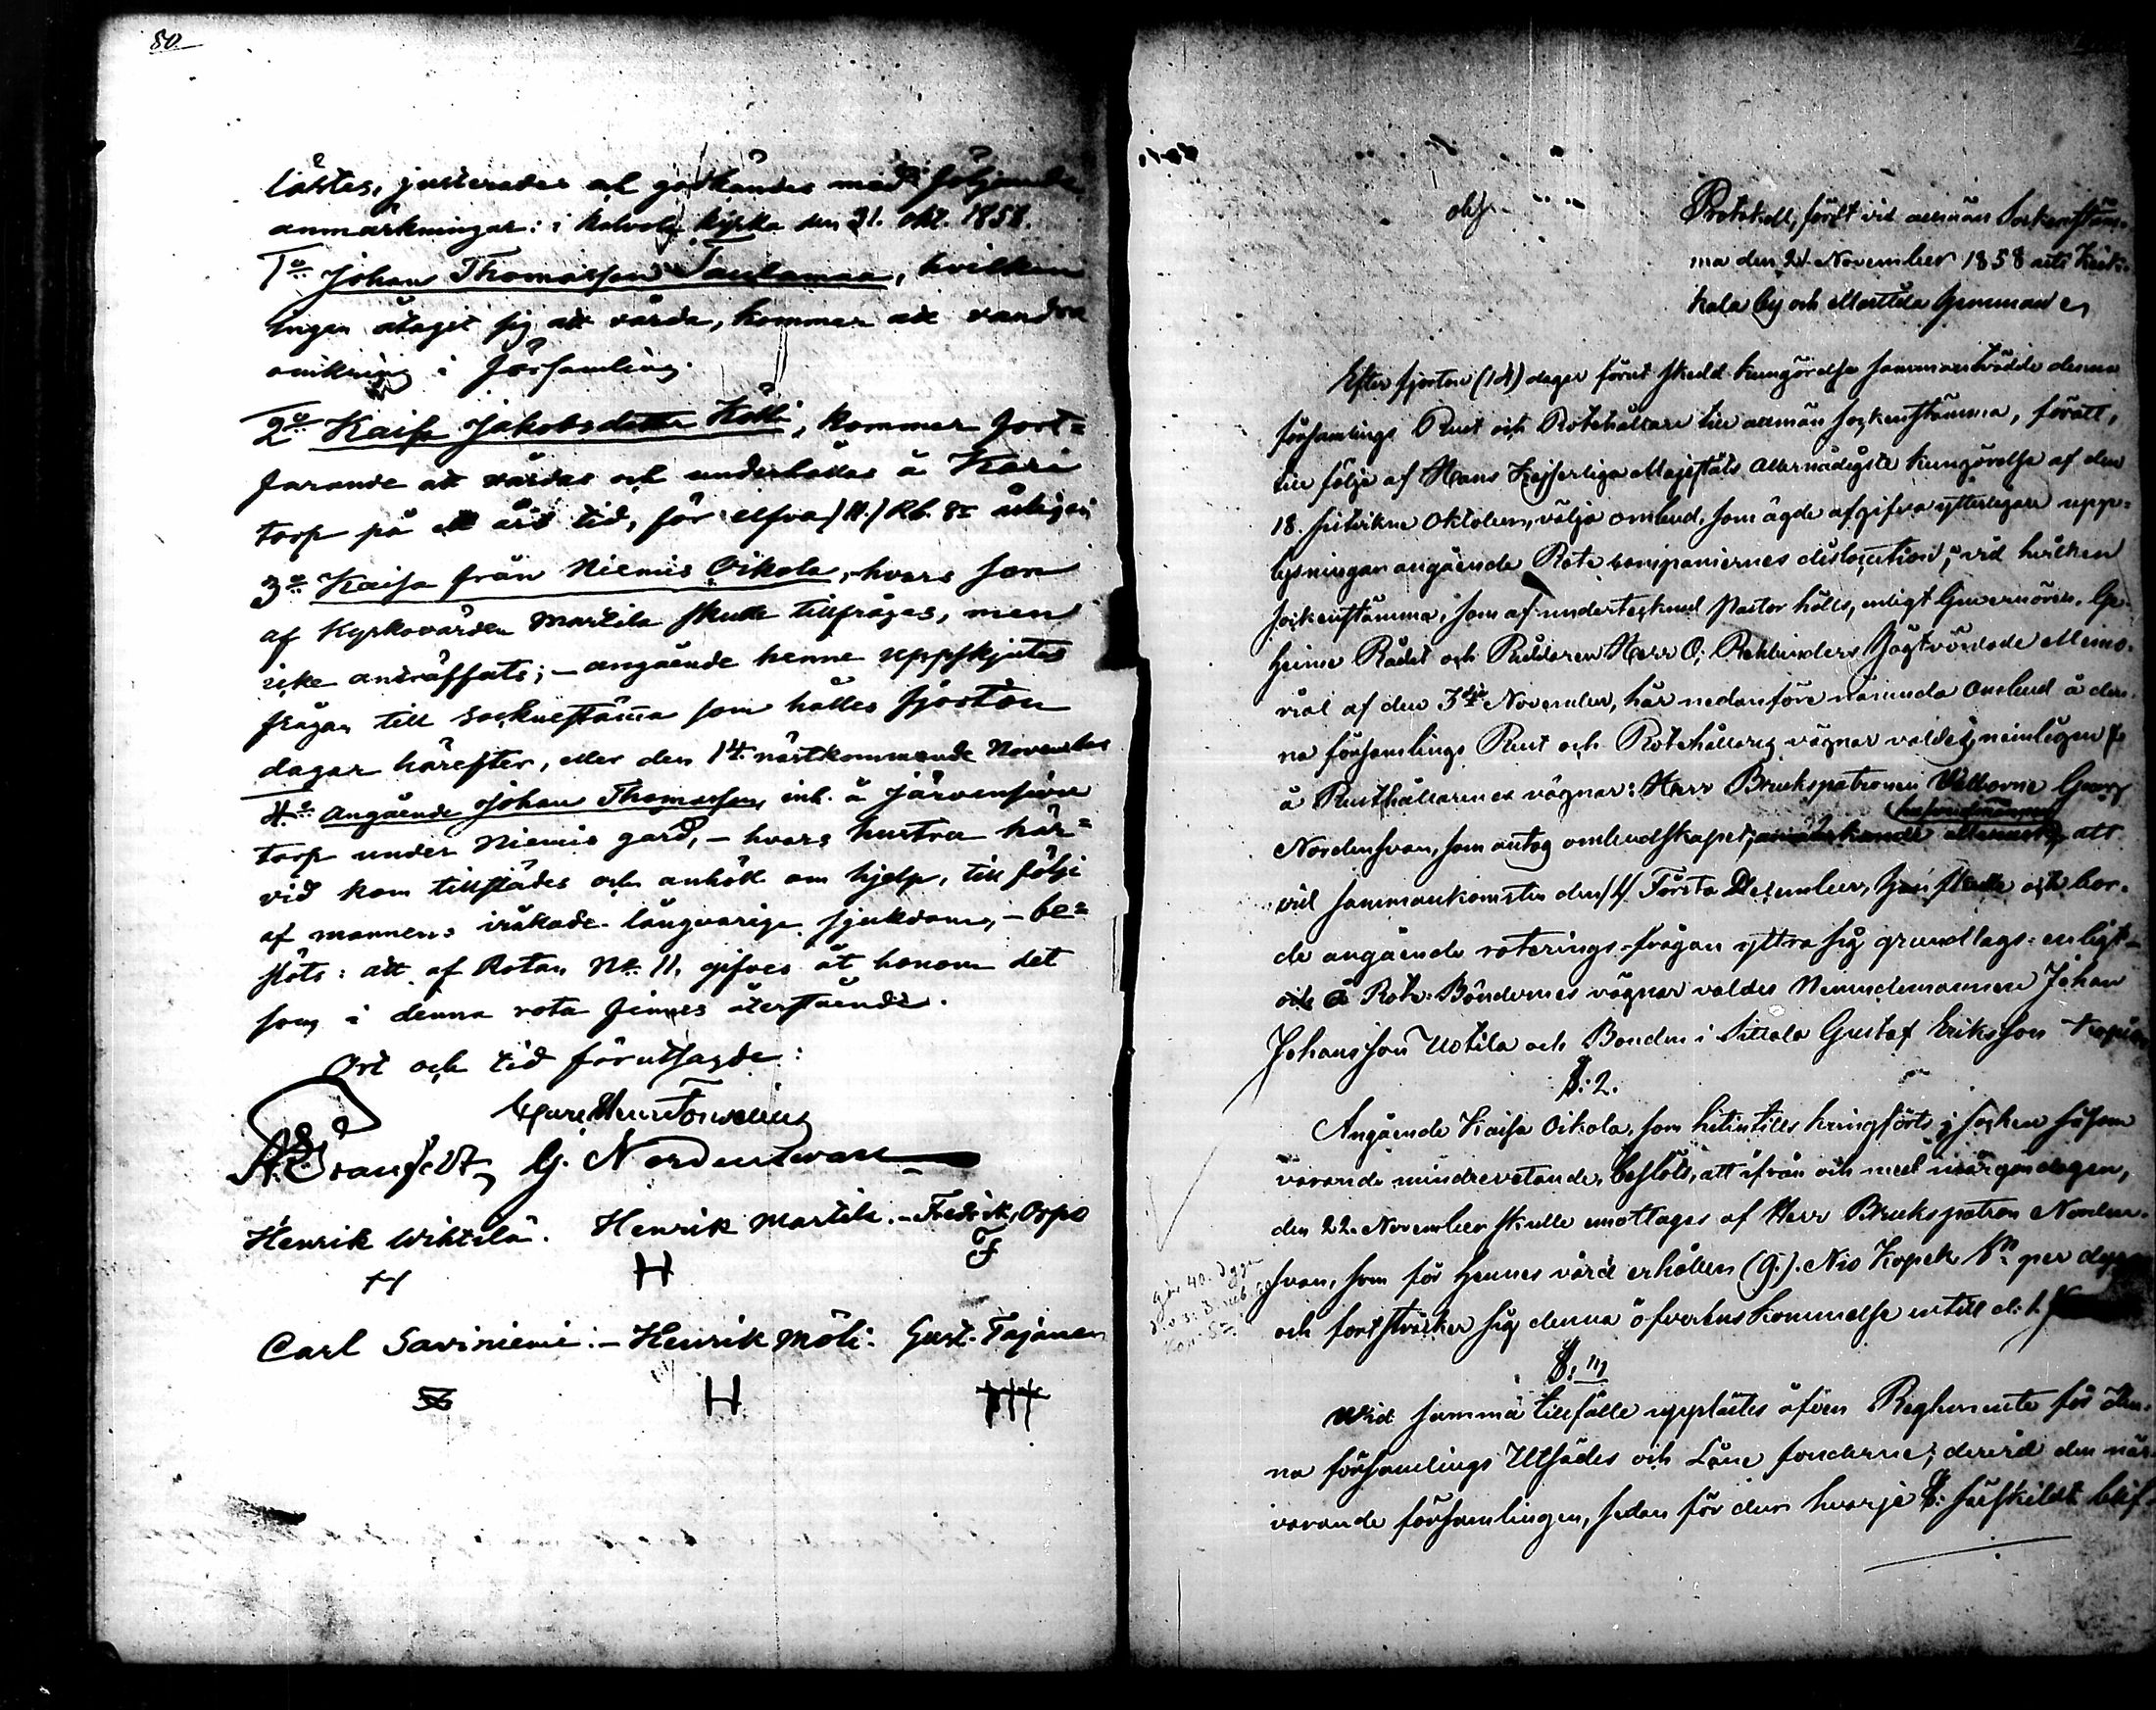 80
lästes, justerades och godkändes med följande
anmärkningar: i Kalvola kyrka den 31. Okt. 1858.
1o Johan Thomasson Taulamaa, hvilken
ingen åtagit sig att vårda, kommer att vandra
omkring i församling.
2o Kaisa Jakobsdotter Kölli, kommer fort=
farande att vårdas och underhållas å Kari
torp på ett års tid, för elfva (11.) Rb. Sr årligen
3o Kaisa från Niemis Oikola, hvars son
af Kyrkovärden Martila skulle tillfrågas, men
icke anträffats; – angående henne uppskjutes
frågan till sockenstämma som hålles fjorton
dagar härefter, eller den 14. nästkommande November
4o Angående Johan Thomasson, inh. å Järvensivu
torp under Niemis gård, – hvars hustru här=
vid kom tillstädes och anhöll om hjelp, till följe
af mannens iråkade långvariga sjukdom, – be=
slöts: att af Rotan No 11. gifves åt honom det
som i denna rota finnes återstående.
Ort och tid förutsagde:
G. Nordenswan
Henrik Wiktilä. Henrik Martila. – Fredrik Orpo
H H F
Carl Saviniemi. – Henrik Möli. Gust. Tajanen
H
Protokoll, fördt vid allmän Sockenstäm-
ma den 21 November 1858 uti Keik-
kala by och Marttila Hemman
Efter fjorton (14) dagar förut skedd kungörelse sammanträdde denna
församlings Rust och Rotehållare till allmän sockenstämma, föratt,
till följe af Hans Kejserliga Majestäts Allernådigste kungörelse af den
18. sistvikne Oktober, välja ombud, som ägde afgifva ytterligare upp-
lysningar angående Rote kompaniernes dislocation; vid hvilken
sockenstämma, som af undertecknad Pastor hölls, enligt Guvernören, Ge-
heime Rådet och Riddaren Herr O. Rehbinders Högtvördade Memo-
rial af den 3dje November, här nedanföre nämnda ombud å den-
na församlings Rust och Rotehållares vägnar valdes, nemligen
å Rusthållarenes vägnar: Herr Brukspatronen Välborne Georg
Nordensvan, som antog ombudskapet, att
vid sammankomsten den (1) Första December, han skulle och bor-
de angående roterings-frågan yttra sig grundlags-enligt –
och å Rote-Böndernes vägnar valdes Nämndemannen Johan
Johansson Uotila och Bonden i Sittala Gustaf Eriksson
§. 2.
Angående Kaisa Oikola, som hitintills kringförts i socken såsom
varande mindrevetande, beslöts, att ifrån och med morgondagen,
den 22. November skulle emottagas af Herr Brukspatron Norden-
svan, som för hennes vård erhåller (9.) Nio Kopek Sr per dygn
och fortsträcker sig denna öfverenskommelse intill d. 1.
gör 40. dygn
§. 3
Wid samma tillfälle upplästes äfven Reglemente för den-
na församlings Utsädes och Låne fonderne; dervid den när-
varande församlingen, sedan för dem hvarje §. särskildt blif-